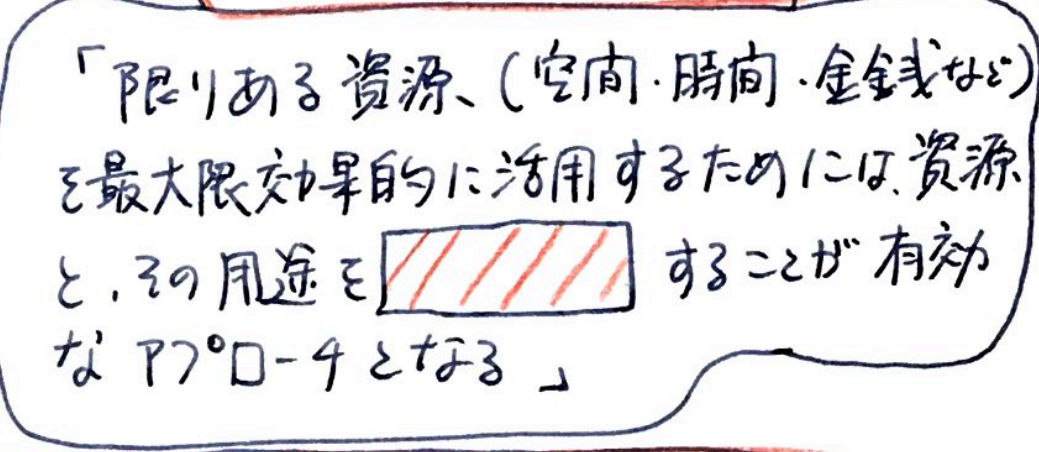 「限りある資源、(空間・時間・金銭など)
を最大限効果的に活用するためには、資源
と、その用途を　　　　することが有効
なアプローチとなる」